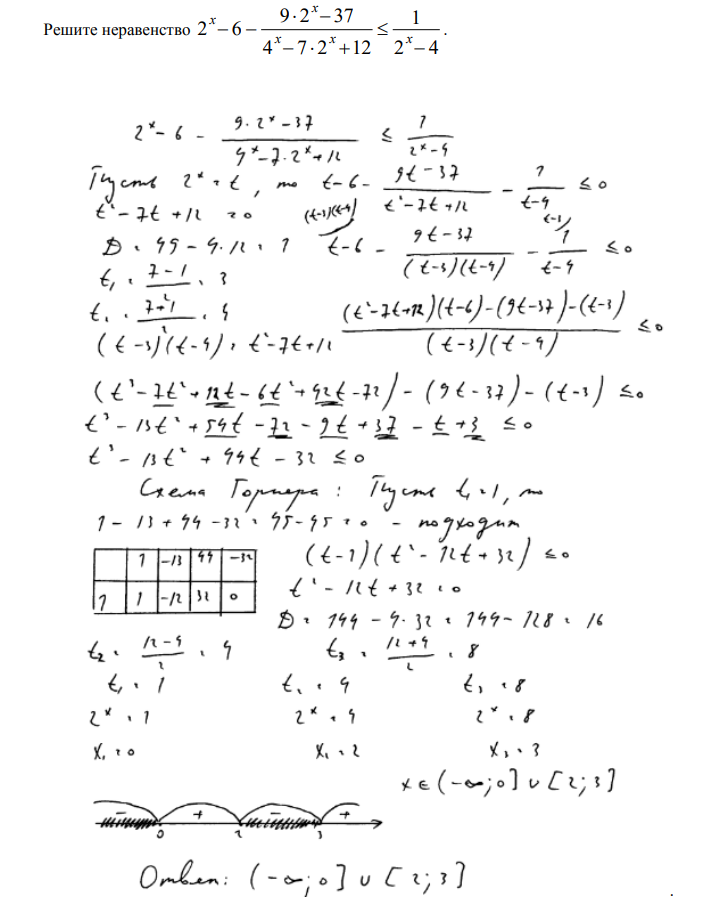 Решите неравенство 2^x − 6 − (9·2^x − 37)/(4^x − 7·2^x + 12) ≤ 1/(2^x − 4).
2^x − 6 − (9·2^x − 37)/(4^x − 7·2^x + 12) ≤ 1/(2^x − 4)
Пусть 2^x = t, то t − 6 − (9t − 37)/(t² − 7t + 12) − 1/(t − 4) ≤ 0
t² − 7t + 12 = 0
D = 49 − 4·12 = 1 (t−3)(t−4) t − 6 − (9t − 37)/((t − 3)(t − 4)) − (t−3) 1/(t − 4) ≤ 0
t₁ = (7 − 1)/2 = 3
t₂ = (7 + 1)/2 = 4 ((t² − 7t + 12)(t − 6) − (9t − 37) − (t − 3))/((t − 3)(t − 4)) ≤ 0
(t − 3)(t − 4) = t² − 7t + 12
(t³ − 7t² + 12t − 6t² + 42t − 72) − (9t − 37) − (t − 3) ≤ 0
t³ − 13t² + 54t − 72 − 9t + 37 − t + 3 ≤ 0
t³ − 13t² + 44t − 32 ≤ 0
Схема Горнера: Пусть t₁ = 1, то
1 − 13 + 44 − 32 = 45 − 45 = 0 − подходит
1 −13 44 −32
1 1 −12 32 0
(t − 1)(t² − 12t + 32) ≤ 0
t² − 12t + 32 = 0
D = 144 − 4·32 = 144 − 128 = 16
t₂ = (12 − 4)/2 = 4 t₃ = (12 + 4)/2 = 8
t₁ = 1 t₂ = 4 t₃ = 8
2^x = 1 2^x = 4 2^x = 8
x₁ = 0 x₂ = 2 x₃ = 3
x ∈ (−∞; 0] ∪ [2; 3]
− + − +
0 2 3
Ответ: (−∞; 0] ∪ [2; 3]